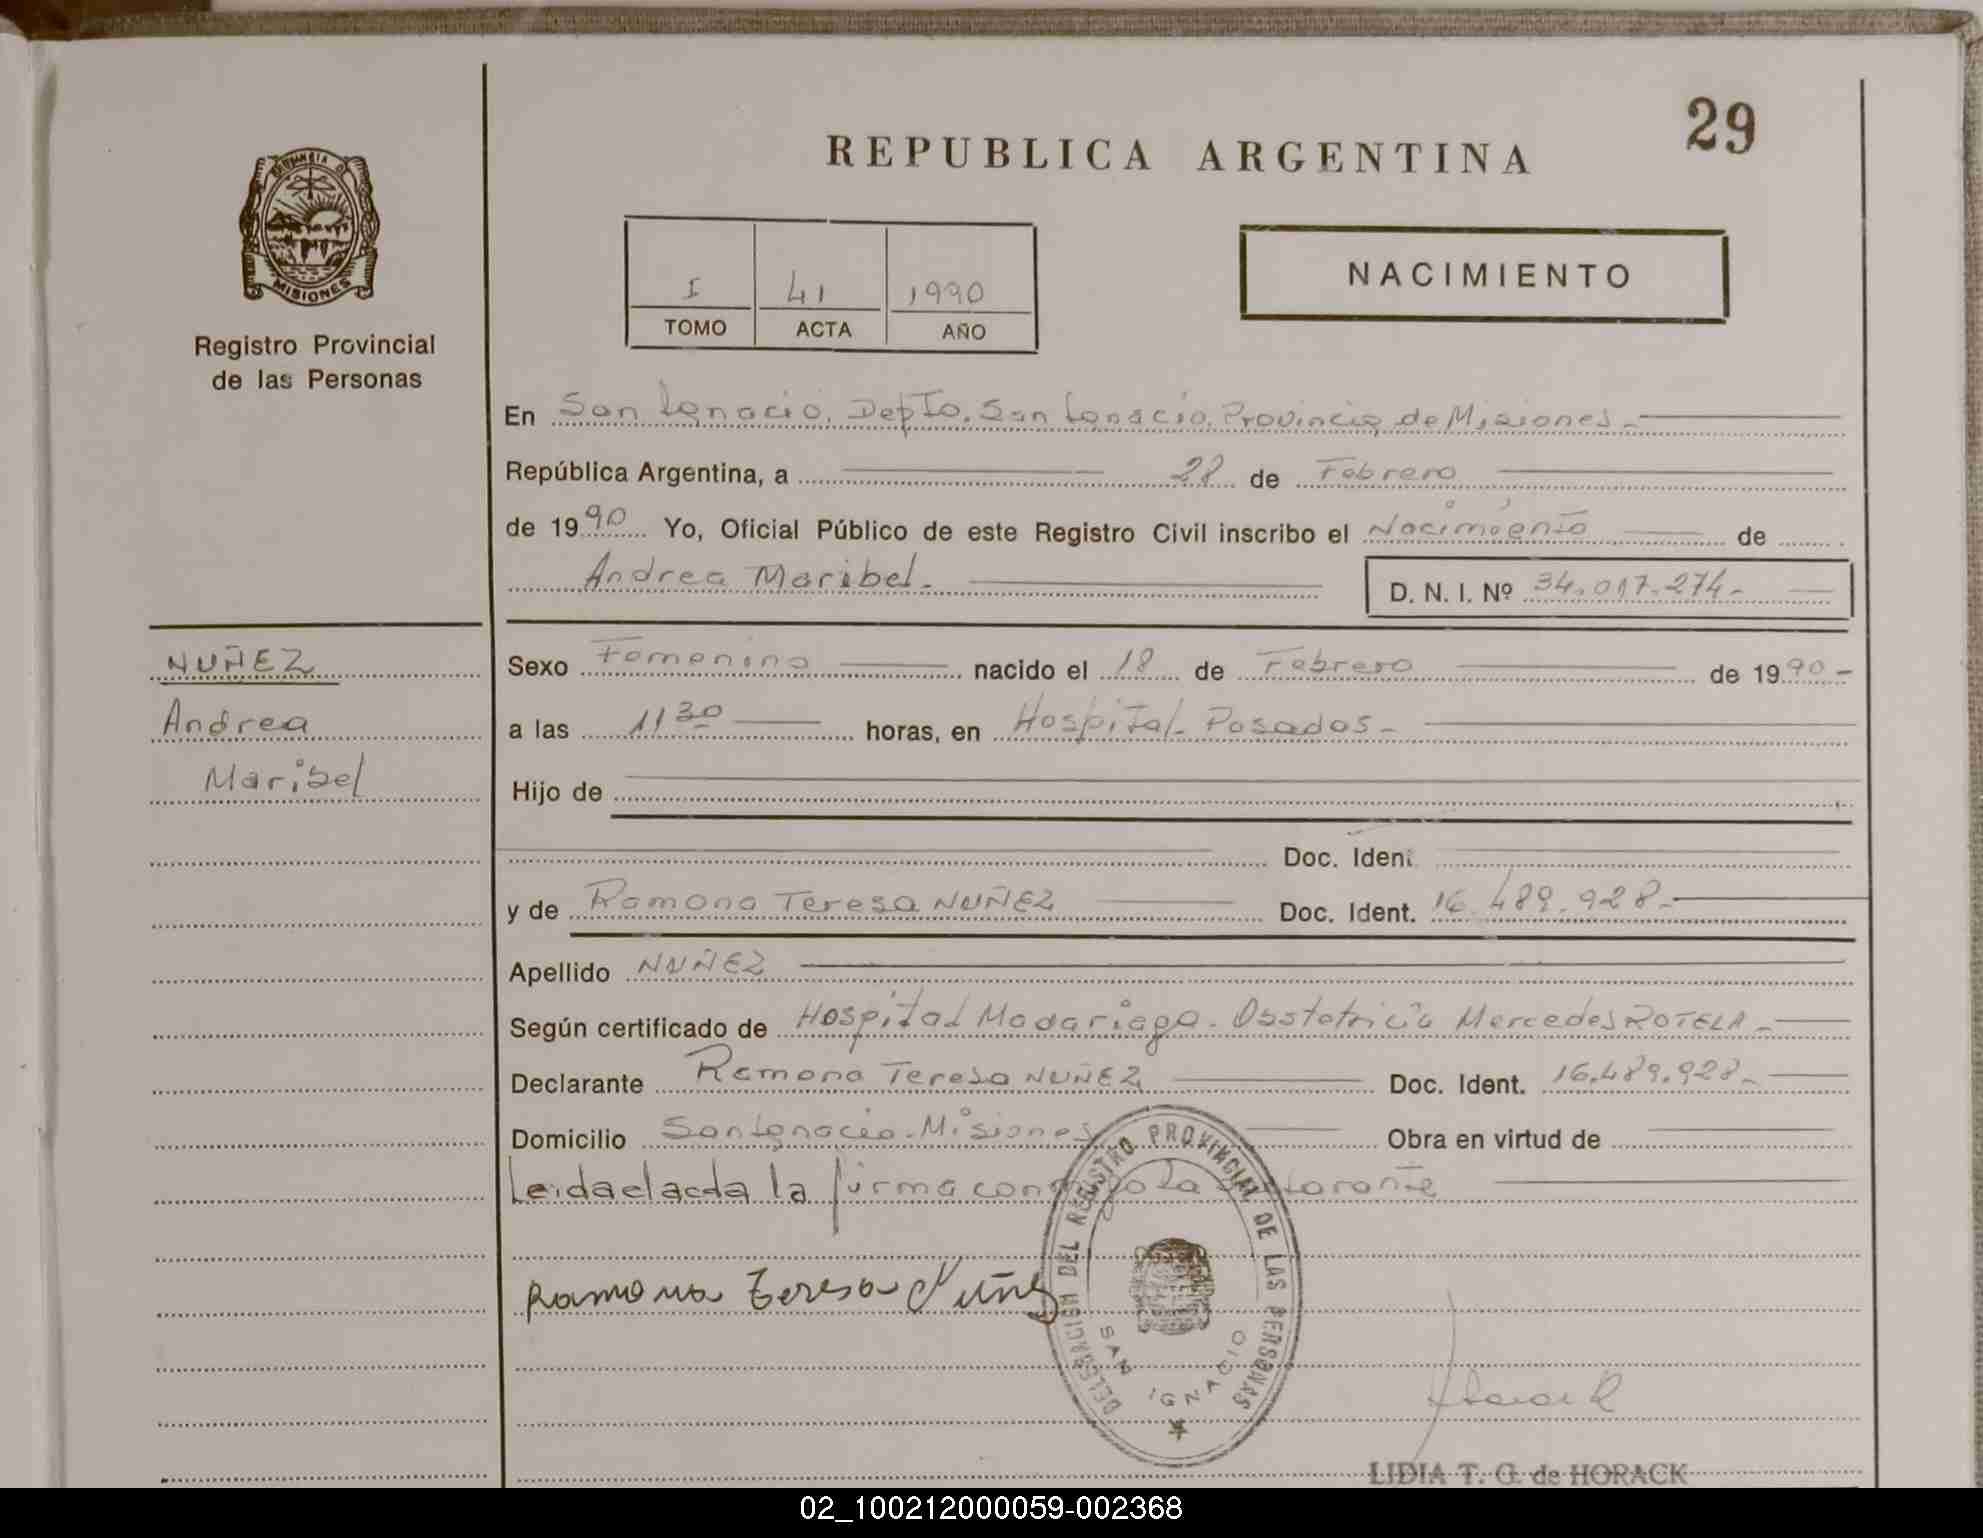 29
REPUBLICA ARGENTINA
PROVINCIA D
MISIONES
Registro Provincial
de las Personas
I 41 1990
TOMO ACTA AÑO
NACIMIENTO
En San Ignacio. Depto. San Ignacio. Provincia de Misiones.-
República Argentina, a 28 de Febrero
de 1990 Yo, Oficial Público de este Registro Civil inscribo el Nacimiento de
Andrea Maribel.-
D. N. I. Nº 34.017.274.-
NUÑEZ
Andrea
Maribel
Sexo Femenino nacido el 18 de Febrero de 1990-
a las 11 30 horas, en Hospital Posadas-
Hijo de
Doc. Ident.
y de Ramona Teresa NUÑEZ Doc. Ident. 16.489.928.-
Apellido NUÑEZ
Según certificado de Hospital Madariaga. Obstetricia Mercedes ROTELA-
Declarante Ramona Teresa NUÑEZ Doc. Ident. 16.489.928.-
Domicilio San Ignacio. Misiones Obra en virtud de
Leida el acta la firma conmigo la
Ramona Teresa Nuñez
DELEGACION DEL REGISTRO PROVINCIAL DE LAS PERSONAS
SAN IGNACIO
Horack
LIDIA T. G. de HORACK
02_100212000059-002368